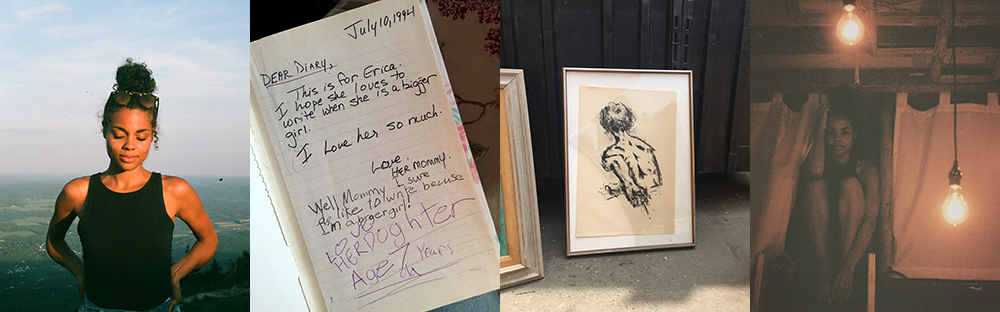 July 10, 1994
DEAR DIARY,
This is for Erica.
I hope she loves to
write when she is a bigger
girl.
I Love her so much.
Love,
HER mommy.
Well Mommy I sure
do like to write because
I'm a biger girl!
LOVE
HER Doghter
Age 7 years